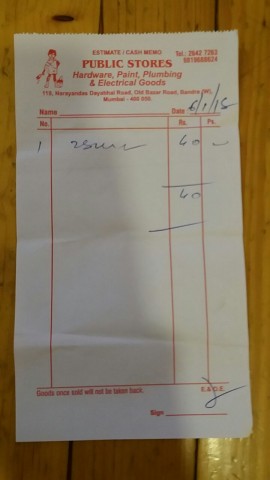 ESTIMATE / CASH MEMO
Tel.: 2642 7263
PUBLIC STORES
9819888624
Hardware, Paint, Plumbing
& Electrical Goods
119, Narayandas Dayabhai Road, Old Bazar Road, Bandra (W),
Mumbai - 400 050.
Name Date 6/1/18
No. Rs. Ps.
1 60
60
Goods once sold will not be taken back. E.& O.E.
Sign